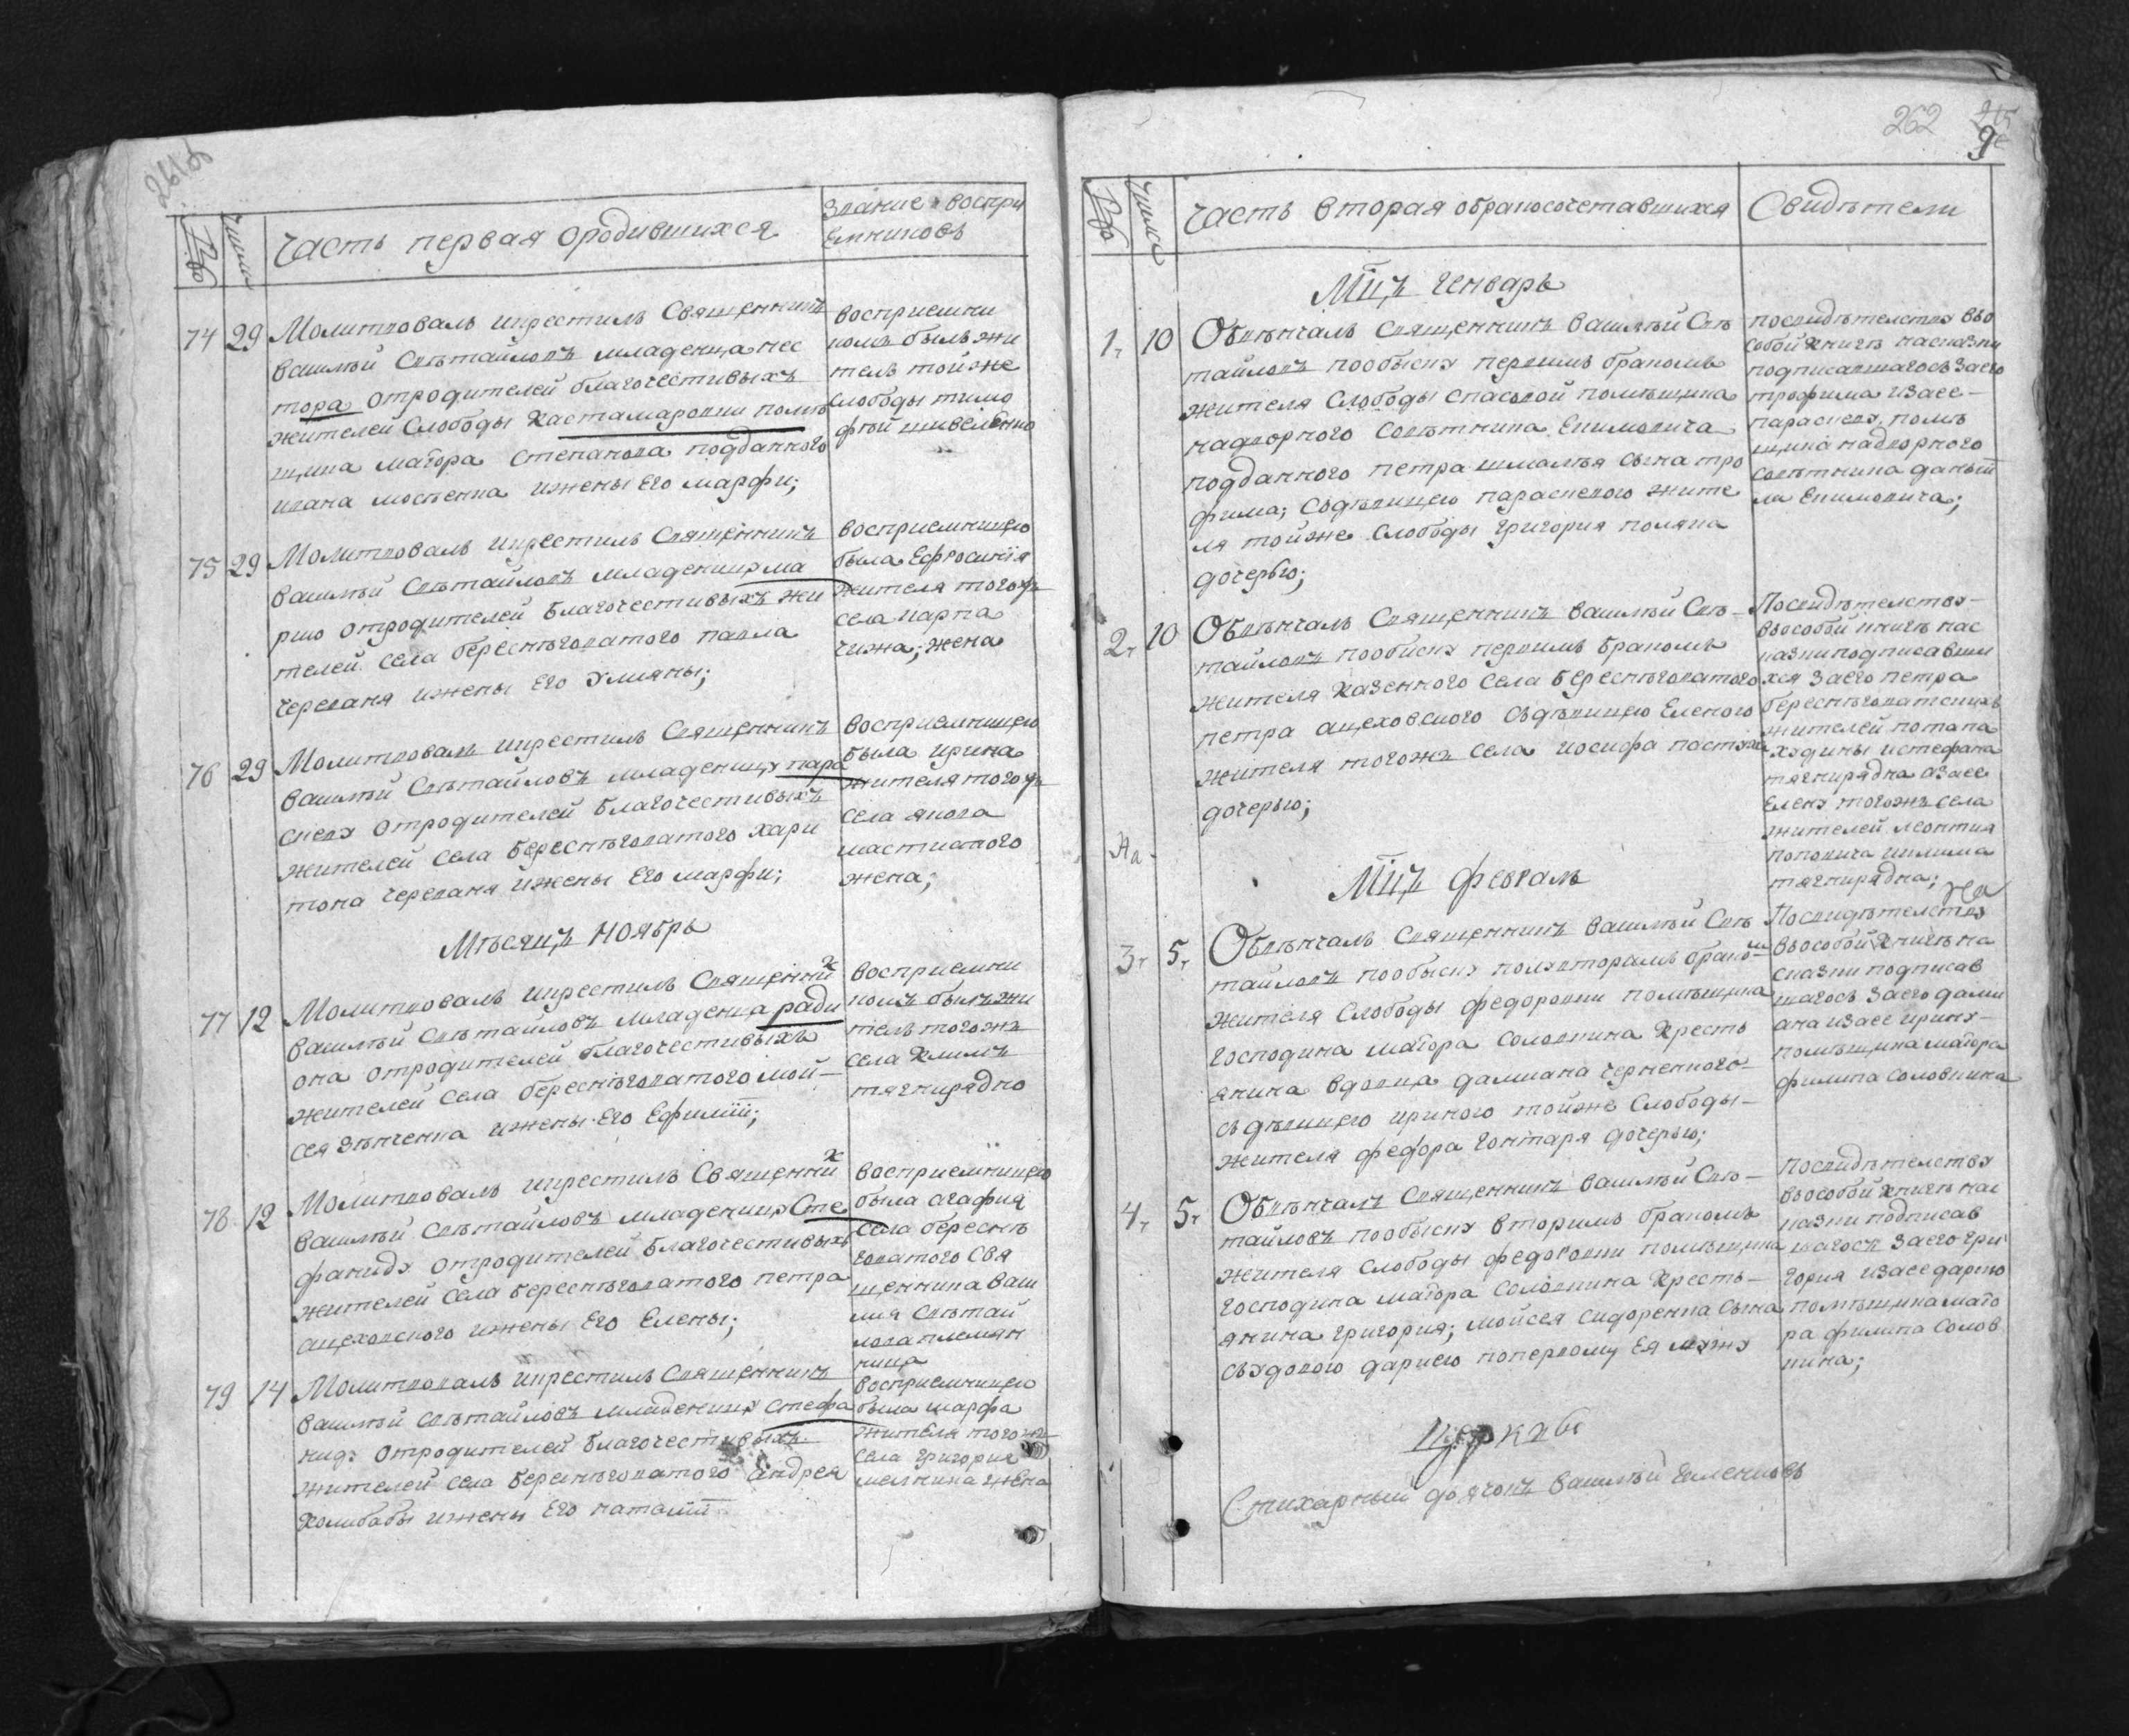 261об
№
числа
Часть первая ородившихся
звание воспри
емниковъ
74 29 Молитвовалъ икрестилъ Священникъ
василій Свѣтайловъ младенца нес
тора отродителей благочестивыхъ
жителей Слободы Кастамаровки помѣ
щика маіора степанова подданного
ивана мосѣенка ижены его марфи;
восприемни
комъ былъ жи
тель тойже
слободы тимо
фѣй
75 29 Молитвовалъ икрестилъ Священникъ
василій Свѣтайловъ младеницу ма
рию отродителей благочестивыхъ жи
телей села береснѣговатого павла
череваня ижены его Улияны;
восприемницею
была Ефросинія
жителя тогожъ
села карпа
чижа; жена
76 29 Молитвовалъ икрестилъ Священникъ
василій Свѣтайловъ младеницу пара
скеву отродителей благочестивыхъ
жителей села береснѣговатого хари
тона череваня ижены его марфи;
восприемницею
была ирина
жителя тогожъ
села якова
мастистого
жена;
Мѣсяцъ ноябрь
77 12 Молитвовалъ икрестилъ Священникъ
василій Свѣтайловъ младенца ради
она отродителей благочестивыхъ
жителей села береснѣговатого мой-
сея Зѣнченка ижены его Ефиміи;
восприемни
комъ былъ жи
тель тогожъ
села Климъ
тягнирядно
78 12 Молитвовалъ икрестилъ Священникъ
василій Свѣтайловъ младеницу Сте
фаниду отродителей благочестивыхъ
жителей села береснѣговатого петра
ацеховского ижены его Елены;
восприемницею
была агафия
села береснѣ
говатого свя
щенника васи
лия Свѣтай
лова племян
ница
79 14 Молитвовалъ икрестилъ Священникъ
василій Свѣтайловъ младеницу стефа
ниду отродителей благочестивыхъ
жителей села береснѣговатого андрея
Колибабы ижены его наталіи
восприемницею
была марфа
жителя тогожъ
села григория
мелника жена
262
9
№
числа
Часть вторая обракосочетавшихся
Свидѣтели
Мцъ генварь
1. 10 Обвѣнчалъ священникъ василій Свѣ
тайловъ пообыску первимъ бракомъ
жителя Слободы спасовой помѣщика
надворного совѣтника Екимовича
подданного петра шмалѣя сына тро
фима; Содѣвицею параскевою жите
ля тойже слободы григория поляка
дочерью;
посвидѣтелству вво
собой книгѣ насказки
подписавшагось заего
трофима изаее-
параскеву, помѣ
щика надворного
совѣтника даніи
ла Екимовича;
2. 10 Обвѣнчалъ Священникъ василій Свѣ-
тайловъ пообиску первимъ бракомъ
жителя казенного села береснѣговатого
петра ацеховского съдѣвицею Еленою
жителя тогожъ села иосифа пастуха
дочерью;
Посвидѣтелству-
ввособой книгѣ нас
казки подписавши
хся заего петра
береснѣговатскихъ
жителей потапа
худины истефана
тягнирядна азаее
Елену тогожъ села
жителей леонтия
поповича иклима
тягнирядна;
Мцъ февраль
3. 5. Обвѣнчалъ священникъ василій Свѣ
тайловъ пообыску полувторимъ бракомъ
жителя Слободы федоровки помѣщика
господина маіора соловкина крестъ
янина вдовца дамиана черненкого-
съдѣвицею ириною тойже слободы-
жителя федора гонтаря дочерью;
Посвидѣтелству
ввособой книгѣ на
сказки подписав
шагось заего дами
ана изаее ирину-
помѣщика маіора
филипа соловкина
4. 5. Обвѣнчалъ Священникъ василій Свѣ-
тайловъ пообыску вторимъ бракомъ
жителя слободы федоровки помѣщика
господина маіора соловкина кресть-
янина григория; мойсея сидоренка сына
съвдовою дариею попервому ея мужу
посвидѣтелству
ввособой книгѣ нас
казки подписав
шагось заего гри
гория изаее дарию
помѣщика маіо
ра филипа солов
кина;
Стихарный дьячокъ василій